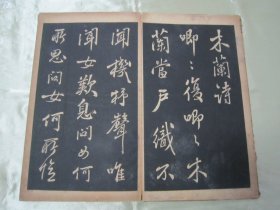 木蘭詩
唧〻復唧〻木
蘭當戶織不
聞機杼聲唯
聞女歎息問女何
所思問女何所憶